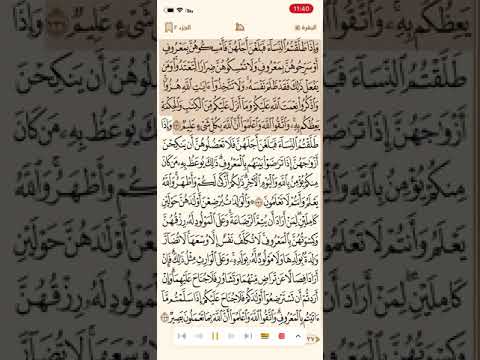 11:40
البقرة
الجزء ٢
وَإِذَا طَلَّقْتُمُ ٱلنِّسَآءَ فَبَلَغْنَ أَجَلَهُنَّ فَأَمْسِكُوهُنَّ بِمَعْرُوفٍ
أَوْ سَرِّحُوهُنَّ بِمَعْرُوفٍ وَلَا تُمْسِكُوهُنَّ ضِرَارًا لِّتَعْتَدُوا۟ وَمَن
يَفْعَلْ ذَٰلِكَ فَقَدْ ظَلَمَ نَفْسَهُۥ وَلَا تَتَّخِذُوٓا۟ ءَايَٰتِ ٱللَّهِ هُزُوًا
وَٱذْكُرُوا۟ نِعْمَتَ ٱللَّهِ عَلَيْكُمْ وَمَآ أَنزَلَ عَلَيْكُم مِّنَ ٱلْكِتَٰبِ وَٱلْحِكْمَةِ
يَعِظُكُم بِهِۦ وَٱتَّقُوا۟ ٱللَّهَ وَٱعْلَمُوٓا۟ أَنَّ ٱللَّهَ بِكُلِّ شَىْءٍ عَلِيمٌ ٢٣١ وَإِذَا
طَلَّقْتُمُ ٱلنِّسَآءَ فَبَلَغْنَ أَجَلَهُنَّ فَلَا تَعْضُلُوهُنَّ أَن يَنكِحْنَ
أَزْوَٰجَهُنَّ إِذَا تَرَٰضَوْا۟ بَيْنَهُم بِٱلْمَعْرُوفِ ذَٰلِكَ يُوعَظُ بِهِۦ مَن كَانَ
مِنكُمْ يُؤْمِنُ بِٱللَّهِ وَٱلْيَوْمِ ٱلْءَاخِرِ ذَٰلِكُمْ أَزْكَىٰ لَكُمْ وَأَطْهَرُ وَٱللَّهُ
يَعْلَمُ وَأَنتُمْ لَا تَعْلَمُونَ ٢٣٢ وَٱلْوَٰلِدَٰتُ يُرْضِعْنَ أَوْلَٰدَهُنَّ حَوْلَيْنِ
كَامِلَيْنِ لِمَنْ أَرَادَ أَن يُتِمَّ ٱلرَّضَاعَةَ وَعَلَى ٱلْمَوْلُودِ لَهُۥ رِزْقُهُنَّ
وَكِسْوَتُهُنَّ بِٱلْمَعْرُوفِ لَا تُكَلَّفُ نَفْسٌ إِلَّا وُسْعَهَا لَا تُضَآرَّ
وَٰلِدَةٌۢ بِوَلَدِهَا وَلَا مَوْلُودٌ لَّهُۥ بِوَلَدِهِۦ وَعَلَى ٱلْوَارِثِ مِثْلُ ذَٰلِكَ فَإِنْ
أَرَادَا فِصَالًا عَن تَرَاضٍ مِّنْهُمَا وَتَشَاوُرٍ فَلَا جُنَاحَ عَلَيْهِمَا وَإِنْ
أَرَدتُّمْ أَن تَسْتَرْضِعُوٓا۟ أَوْلَٰدَكُمْ فَلَا جُنَاحَ عَلَيْكُمْ إِذَا سَلَّمْتُم مَّآ
ءَاتَيْتُم بِٱلْمَعْرُوفِ وَٱتَّقُوا۟ ٱللَّهَ وَٱعْلَمُوٓا۟ أَنَّ ٱللَّهَ بِمَا تَعْمَلُونَ بَصِيرٌ ٢٣٣
٣٧